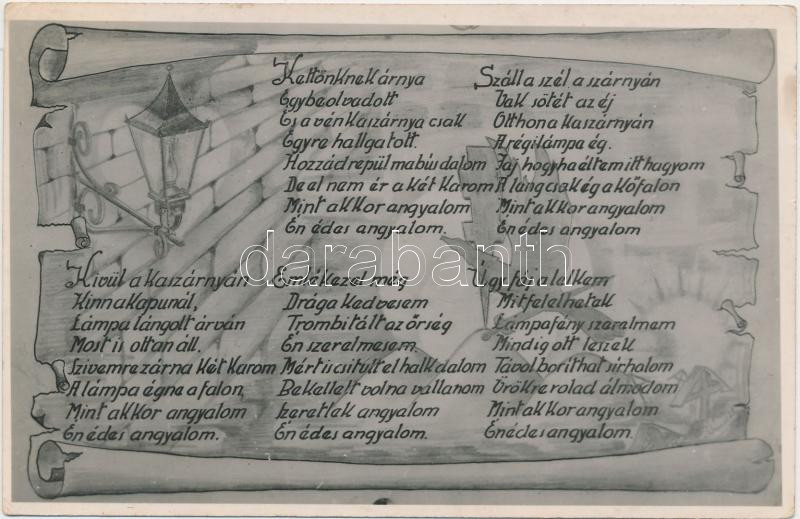 Kettönknek árnya
Egybeolvadott
És a vén kaszárnya csak
Egyre hallgatott.
Hozzád repül ma bús dalom
De el nem ér a két karom
Mint akkor angyalom
Én édes angyalom.
Száll a szél a szárnyán
Vak sötét az éj
Otthon a kaszárnyán
A régi lámpa ég.
Fáj hogyha éltem itt hagyom
A láng csak ég a kőfalon
Mint akkor angyalom
Én édes angyalom
Kivül a kaszárnyán
Kinn a kapunál,
Lámpa lángolt árván
Most is ottan áll.
Szivemre zárna két karom
A lámpa égne a falon,
Mint akkor angyalom
Én édes angyalom.
Emlékezel még
Drága kedvesem
Trombitált az őrség
Én szerelmesem.
Mért is csitult el halk dalom
Be kellett volna vallanom
Szeretlek angyalom
Én édes angyalom.
Úgy fáj a lelkem
Mit felelhetek
Lámpafény szerelmem
Mindig ott leszek
Távol boríthat sírhalom
Örökre rólad álmodom
Mint akkor angyalom
Én édes angyalom.
darabanth